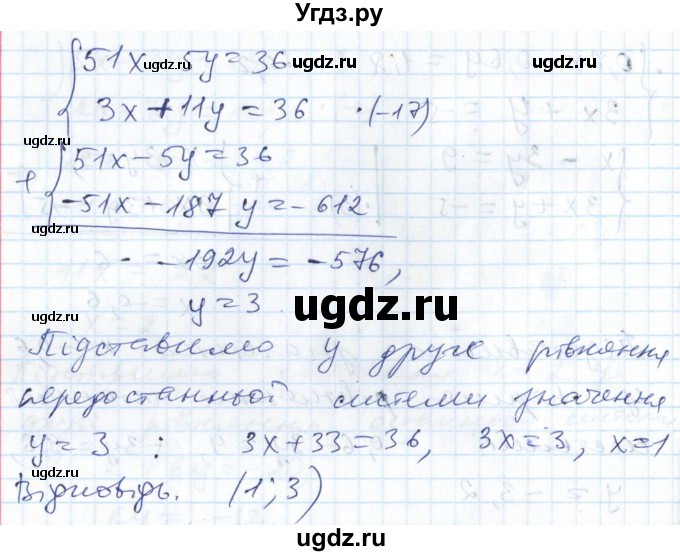 Угдз.ру
51x - 5y = 36
3x + 11y = 36 · (-17)
51x - 5y = 36
+
-51x - 187y = -612
- -192y = -576,
y = 3
Підставимо у друге рівняння
передостанньої системи значення
y = 3 : 3x + 33 = 36, 3x = 3, x = 1
Відповідь. (1; 3)
ugdz.ru
ugdz.ru
ugdz.ru
ugdz.ru
ugdz.ru
ugdz.ru
ugdz.ru
ugdz.ru
ugdz.ru
ugdz.ru
ugdz.ru
ugdz.ru